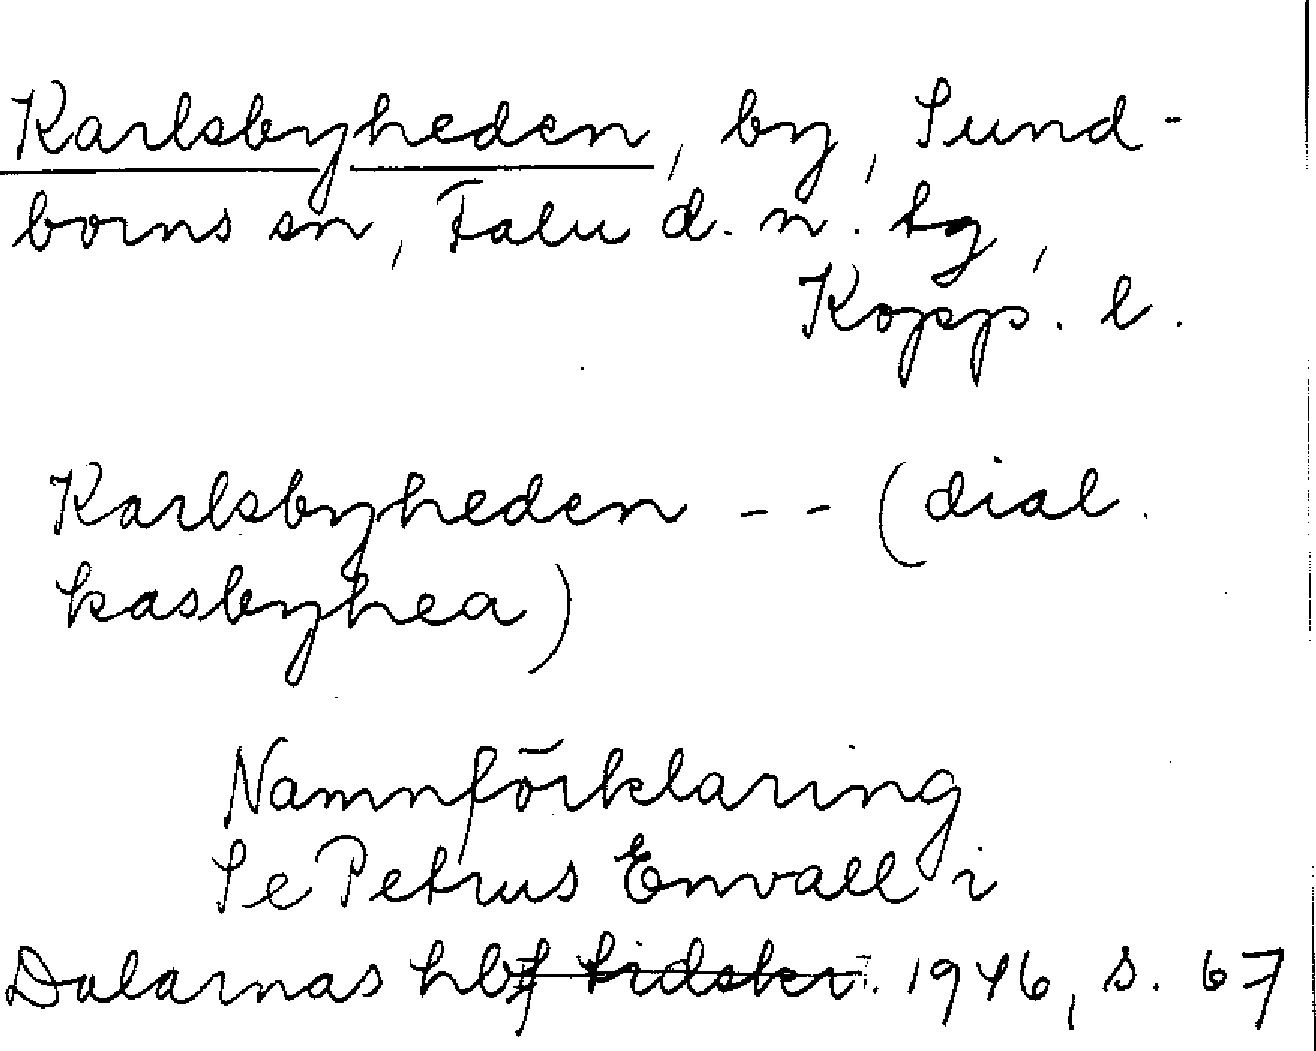 Karlsbyheden, by, Sund-
borns sn, Falu d. n. tg,
Kopp. l.
Karlsbyheden - - (dial.
kasbyhea)
Namnförklaring
Se Petrus Envall i
Dalarnas hbf tidskr. 1946, s. 67